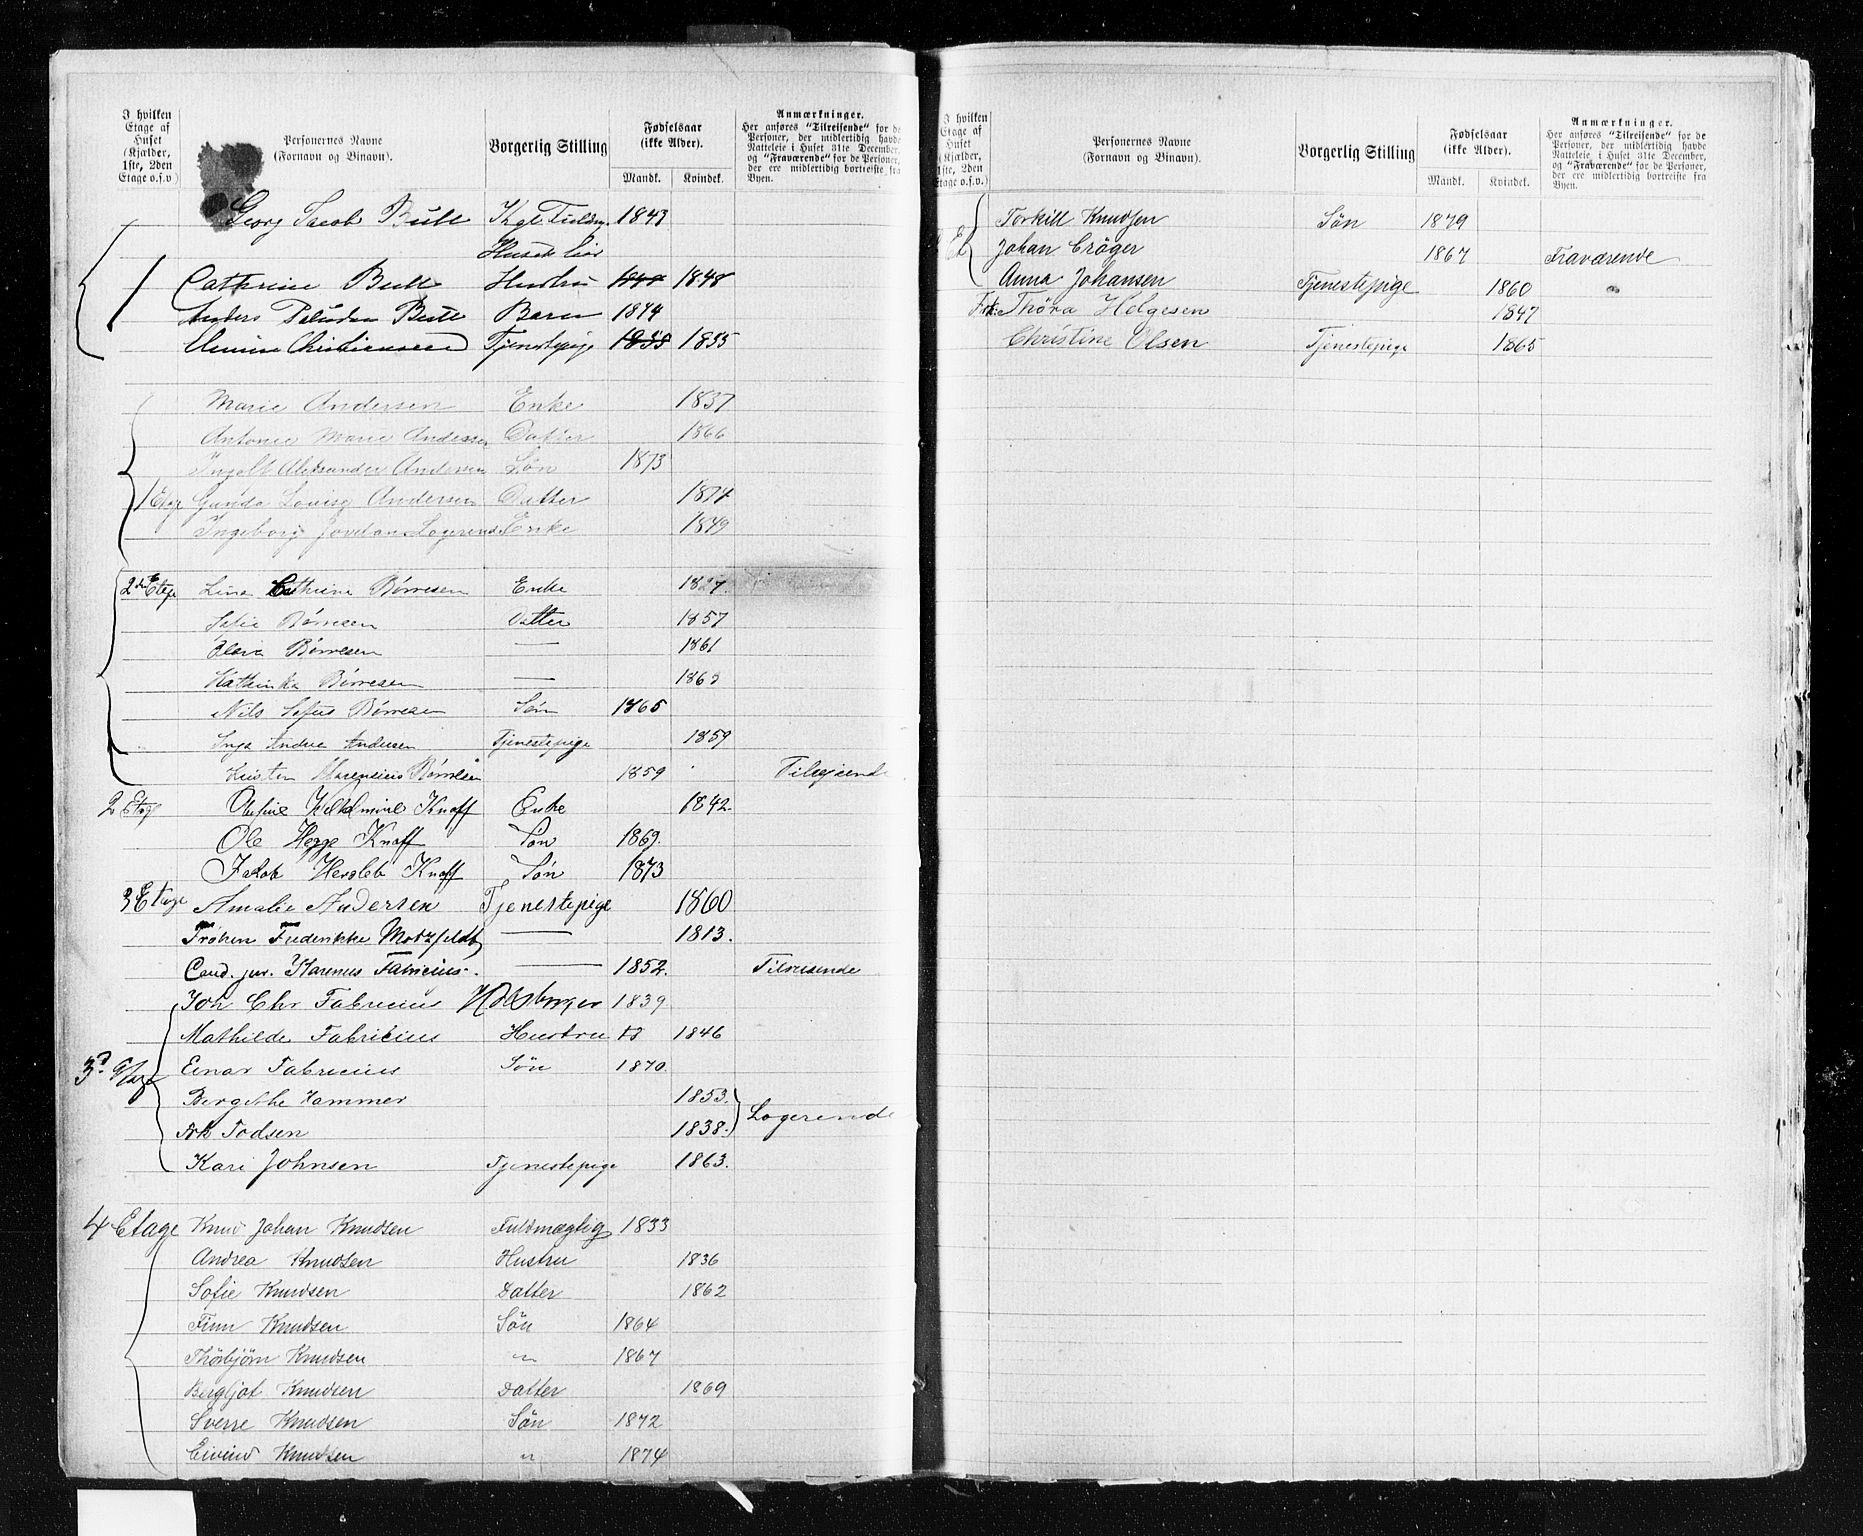 I hvilken Etage af Huset (Kjælder, 1ste, 2den Etage o.s.v.)
Personernes Navne (Fornavn og Binavn).
Borgerlig Stilling
Fødselsaar (ikke Alder).
Mandk. Kvindek.
Anmærkninger.
Her anføres "Tilreisende" for de Personer, der midlertidig havde Natteleie i Huset 31te December, og "Fraværende" for de Personer, der ere midlertidig bortreiste fra Byen.
Georg Jacob Bull Kgl Fuldm. 1843
Huseier
1 Cathrine Bull Hustru 1848
Anders Paludan Bull Barn 1874
Christiansen Tjenestepige 1835
Marie Andersen Enke 1837
Antonie Marie Andersen Datter 1866
Ingolf Aleksander Andersen Søn 1873
1 Etage Gunda Lovise Andersen Datter 1874
Ingeborg Jordan Logerende Enke 1849
2den Etage Lina Cathrine Børresen Enke 1827.
Sofie Børresen Datter 1857
Børresen — 1861
Kathinka Børresen — 1863
Nils Sofus Børresen Søn 1865
Inga Andrea Andersen Tjenestepige 1859
Børresen 1859 Tilreisende
2 Etage Vilhelmine Knoff Enke 1842.
Ole Hegge Knoff Søn 1869.
Jakob Hersleb Knoff Søn 1873
3 Etage Amalie Andersen Tjenestepige 1860
Frøken Frederikke Motzfeldt — 1813.
Cand. jur. Karenus Fabricius — 1852. Tilreisende
Joh Chr Fabricius 1839
Mathilde Fabricius Hustru 1846
3d Etage Einar Fabricius Søn 1870
Bergithe Hammer 1853. Logerende
Frk Todsen 1838.
Kari Johnsen Tjenestepige 1863.
4 Etage Knud Johan Knudsen Fuldmægtig 1833
Andrea Knudsen Hustru 1836
Sofie Knudsen Datter 1862
Finn Knudsen Søn 1864
Thorbjørn Knudsen " 1867
Bergljot Knudsen Datter 1869
Sverre Knudsen Søn 1872
Eivind Knudsen " 1874
I hvilken Etage af Huset (Kjælder, 1ste, 2den Etage o.s.v.)
Personernes Navne (Fornavn og Binavn).
Borgerlig Stilling
Fødselsaar (ikke Alder).
Mandk. Kvindek.
Anmærkninger.
Her anføres "Tilreisende" for de Personer, der midlertidig havde Natteleie i Huset 31te December, og "Fraværende" for de Personer, der ere midlertidig bortreiste fra Byen.
Torkill Knudsen Søn 1879
Johan Crøger 1867 Fraværende
Anna Johansen Tjenestepige 1860
Frk: Thora Helgesen 1847
Christine Olsen Tjenestepige 1865